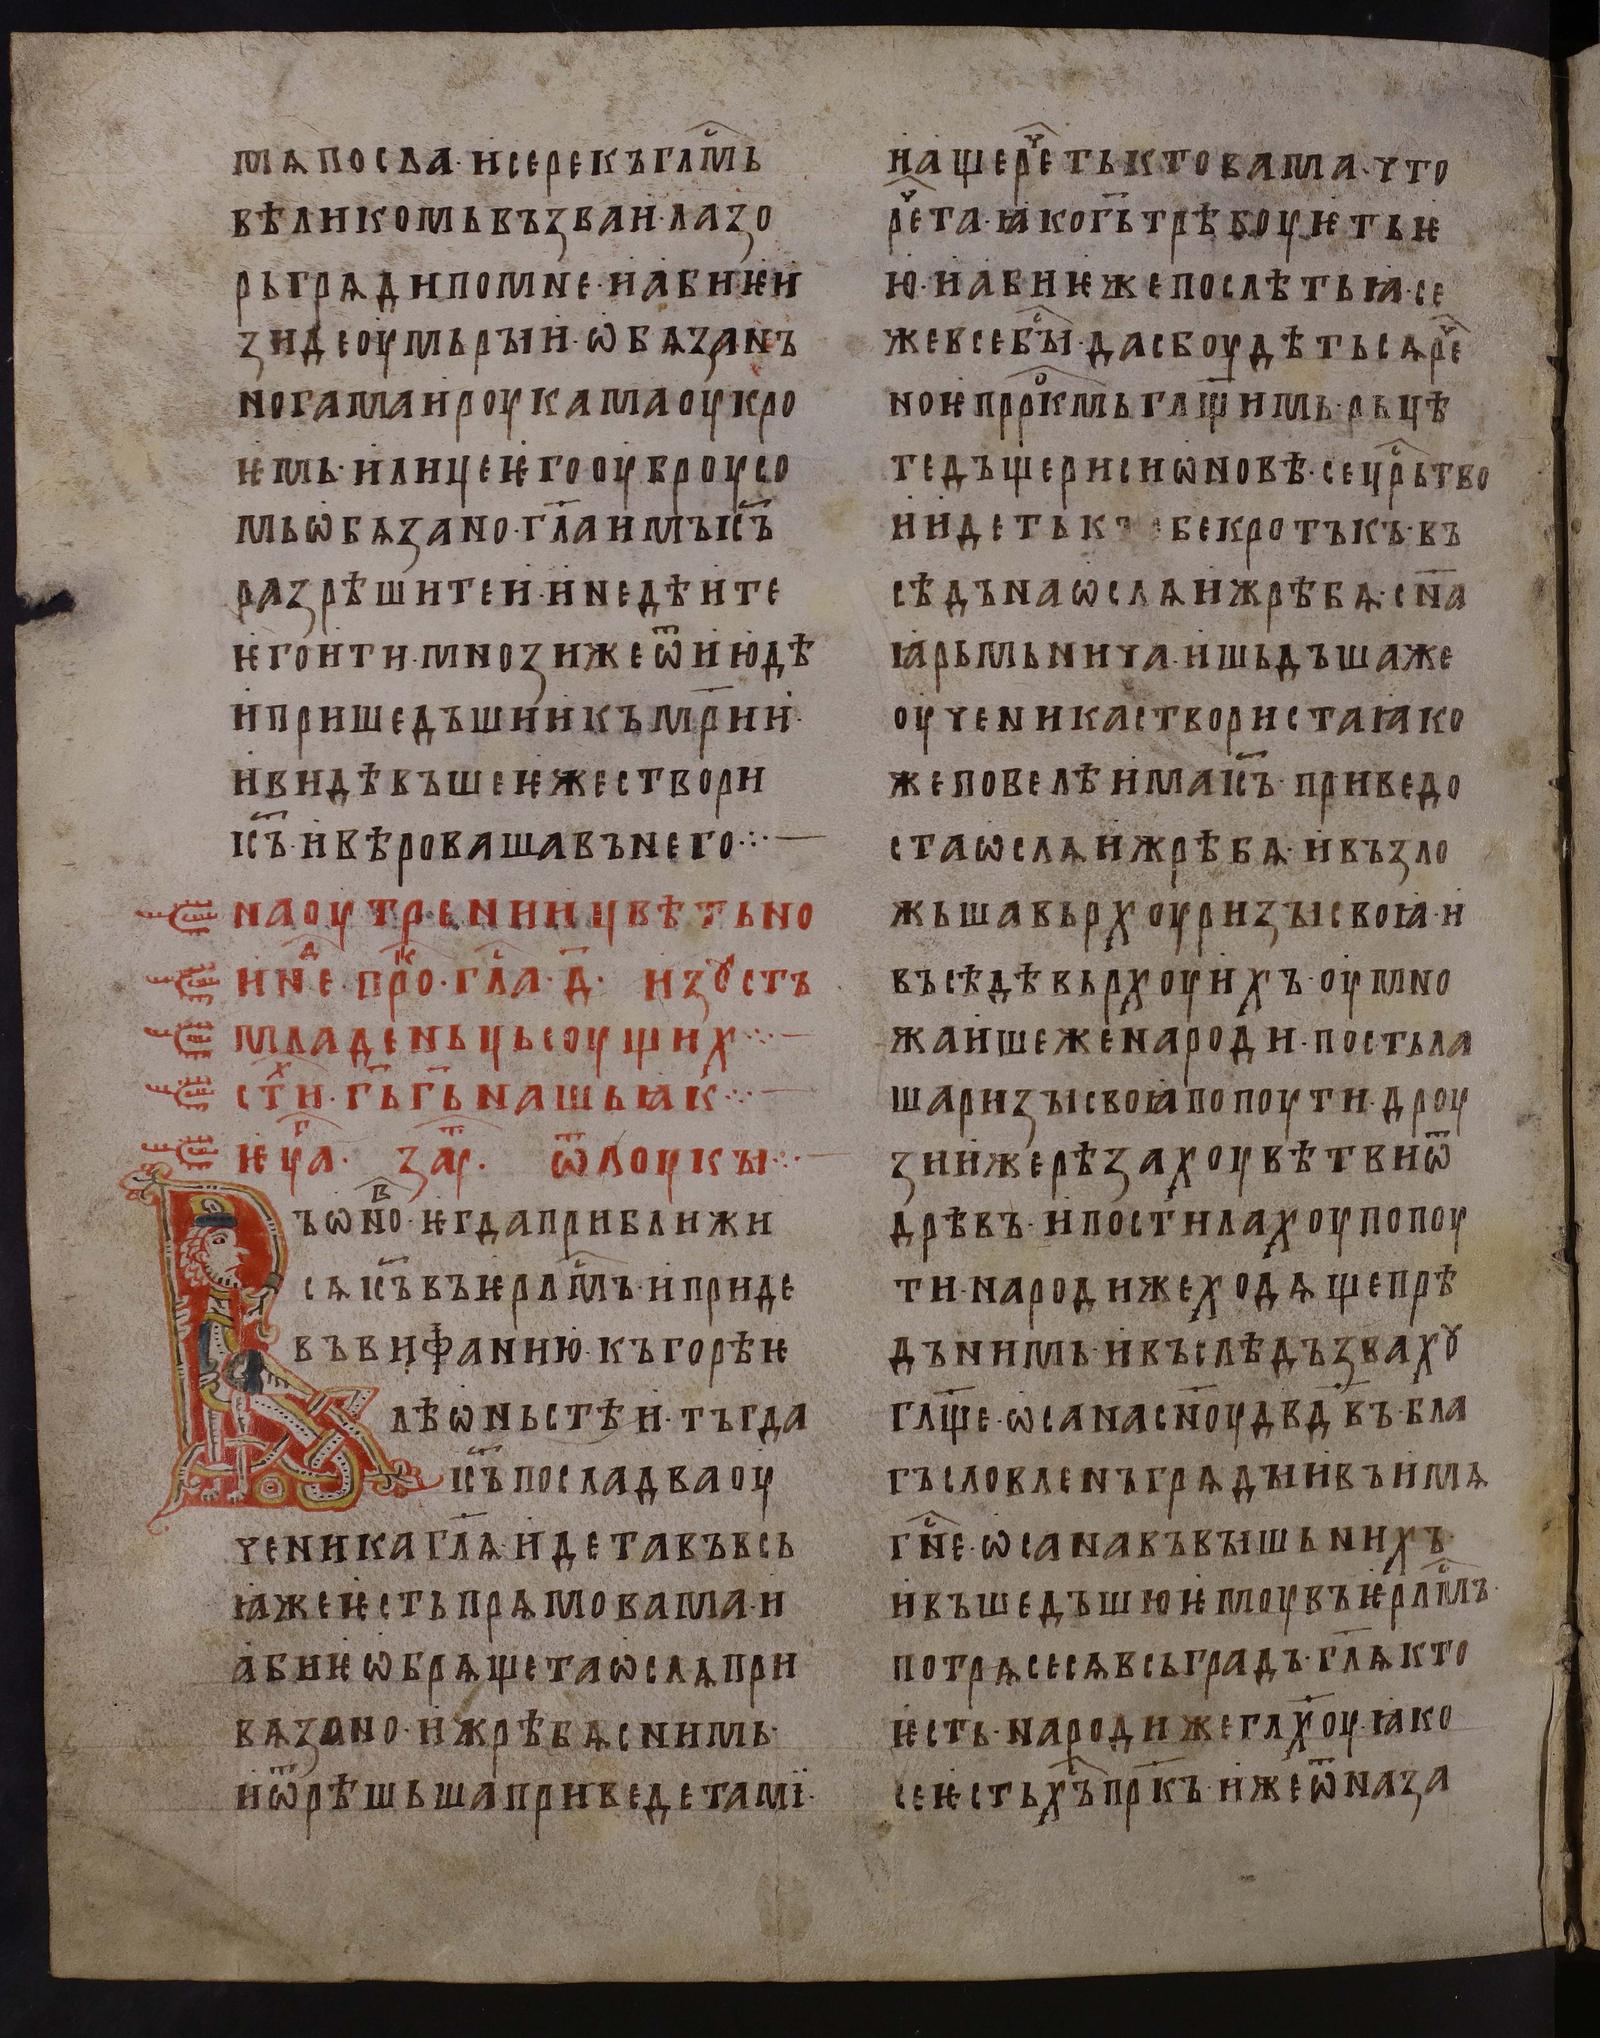 мѧпосла·исерекъгл҃мь
вѣликомьвъзван·лазо
рьгрѧдипомне·набиѥи
зидеоумьрꙑи·ѡбѧзанъ
ногаманроукамаоукро
ѥмь·илицеѥгооуброусо
мьѡбѧзано·гл҃аимъıс҃ъ
разрѣшитеи·инедѣите
ѥгоити·мнозижеѿиюдѣ
ипришедъшиикъмр҃ии·
ивидѣвъшеѥжестворı
ıс҃ъ·ивѣровашавънего
наоутренинцвѣтьно
ин҃е·пр҃о·гл҃а·д҃· изꙋстъ
младеньцьсоущих
ст҃и·гь҃гь҃нашьꙗк
ѥц҃а· зач҃· ѿлоукꙑ
Въѡно·ѥгдаприближи
сѧıс҃ъвъѥрл҃мъ·иприде
въвиѳанию·къгорѣѥ
лѣѡньстѣи·тъгда
ıс҃ъпосладваоу
ченикагл҃ѧ·идетавъвсь
ꙗжеѥстьпрѧмовама·и
абиѥѡбрѧщетаѡслѧпри
вѧзано·ижрѣбѧснимь·
иѿрѣшьшаприведетамї·
нащереч҃етьктовама·что
реч҃ета·ꙗкогь҃трѣбоуѥтьѥ
ю·набиѥжепослѣтьꙗ·се
жевсебꙑ҃·дасбоудѣтьсѧре҃
ноѥпрр҃кмьглщ҃имь·рьцѣ
тедъщерисиѡновѣ·сецр҃ьтво
иидетьк бекротъкъ·въ
сѣдънаѡслѧижрѣбѧ·сн҃а
ꙗрьмьнича·ишьдъшаже
оученикаствористаꙗко
жеповелѣимаıс҃ъ·приведо
стаѡслѧижрѣбѧ·ивъзло
жьшавьрхоуризꙑсвоꙗ·и
въсѣдѣвьрхоуихъ·оумно
жаишеженароди·постьла
шаризꙑсвоꙗпопоути·дроу
зиижерѣзахоувѣтвиѿ
дрѣвъ·ипостилахоупопоу
ти·народижеходѧщепрѣ
дънимь·ивъслѣдъзвахꙋ
глщ҃е·ѡсанасн҃оудв҃двъ·бла
гъсловленъгрѧдꙑивъимѧ
гн҃е·ѡсанавъвꙑшьнихъ·
ивъшедъшюѥмоувъѥрл҃мъ·
потрѧсесѧвсьградъ·гл҃ѧкто
ѥсть·народижегл҃хоу·ꙗко
сеѥстьхъ҃пр҃къ·ижеѿназа